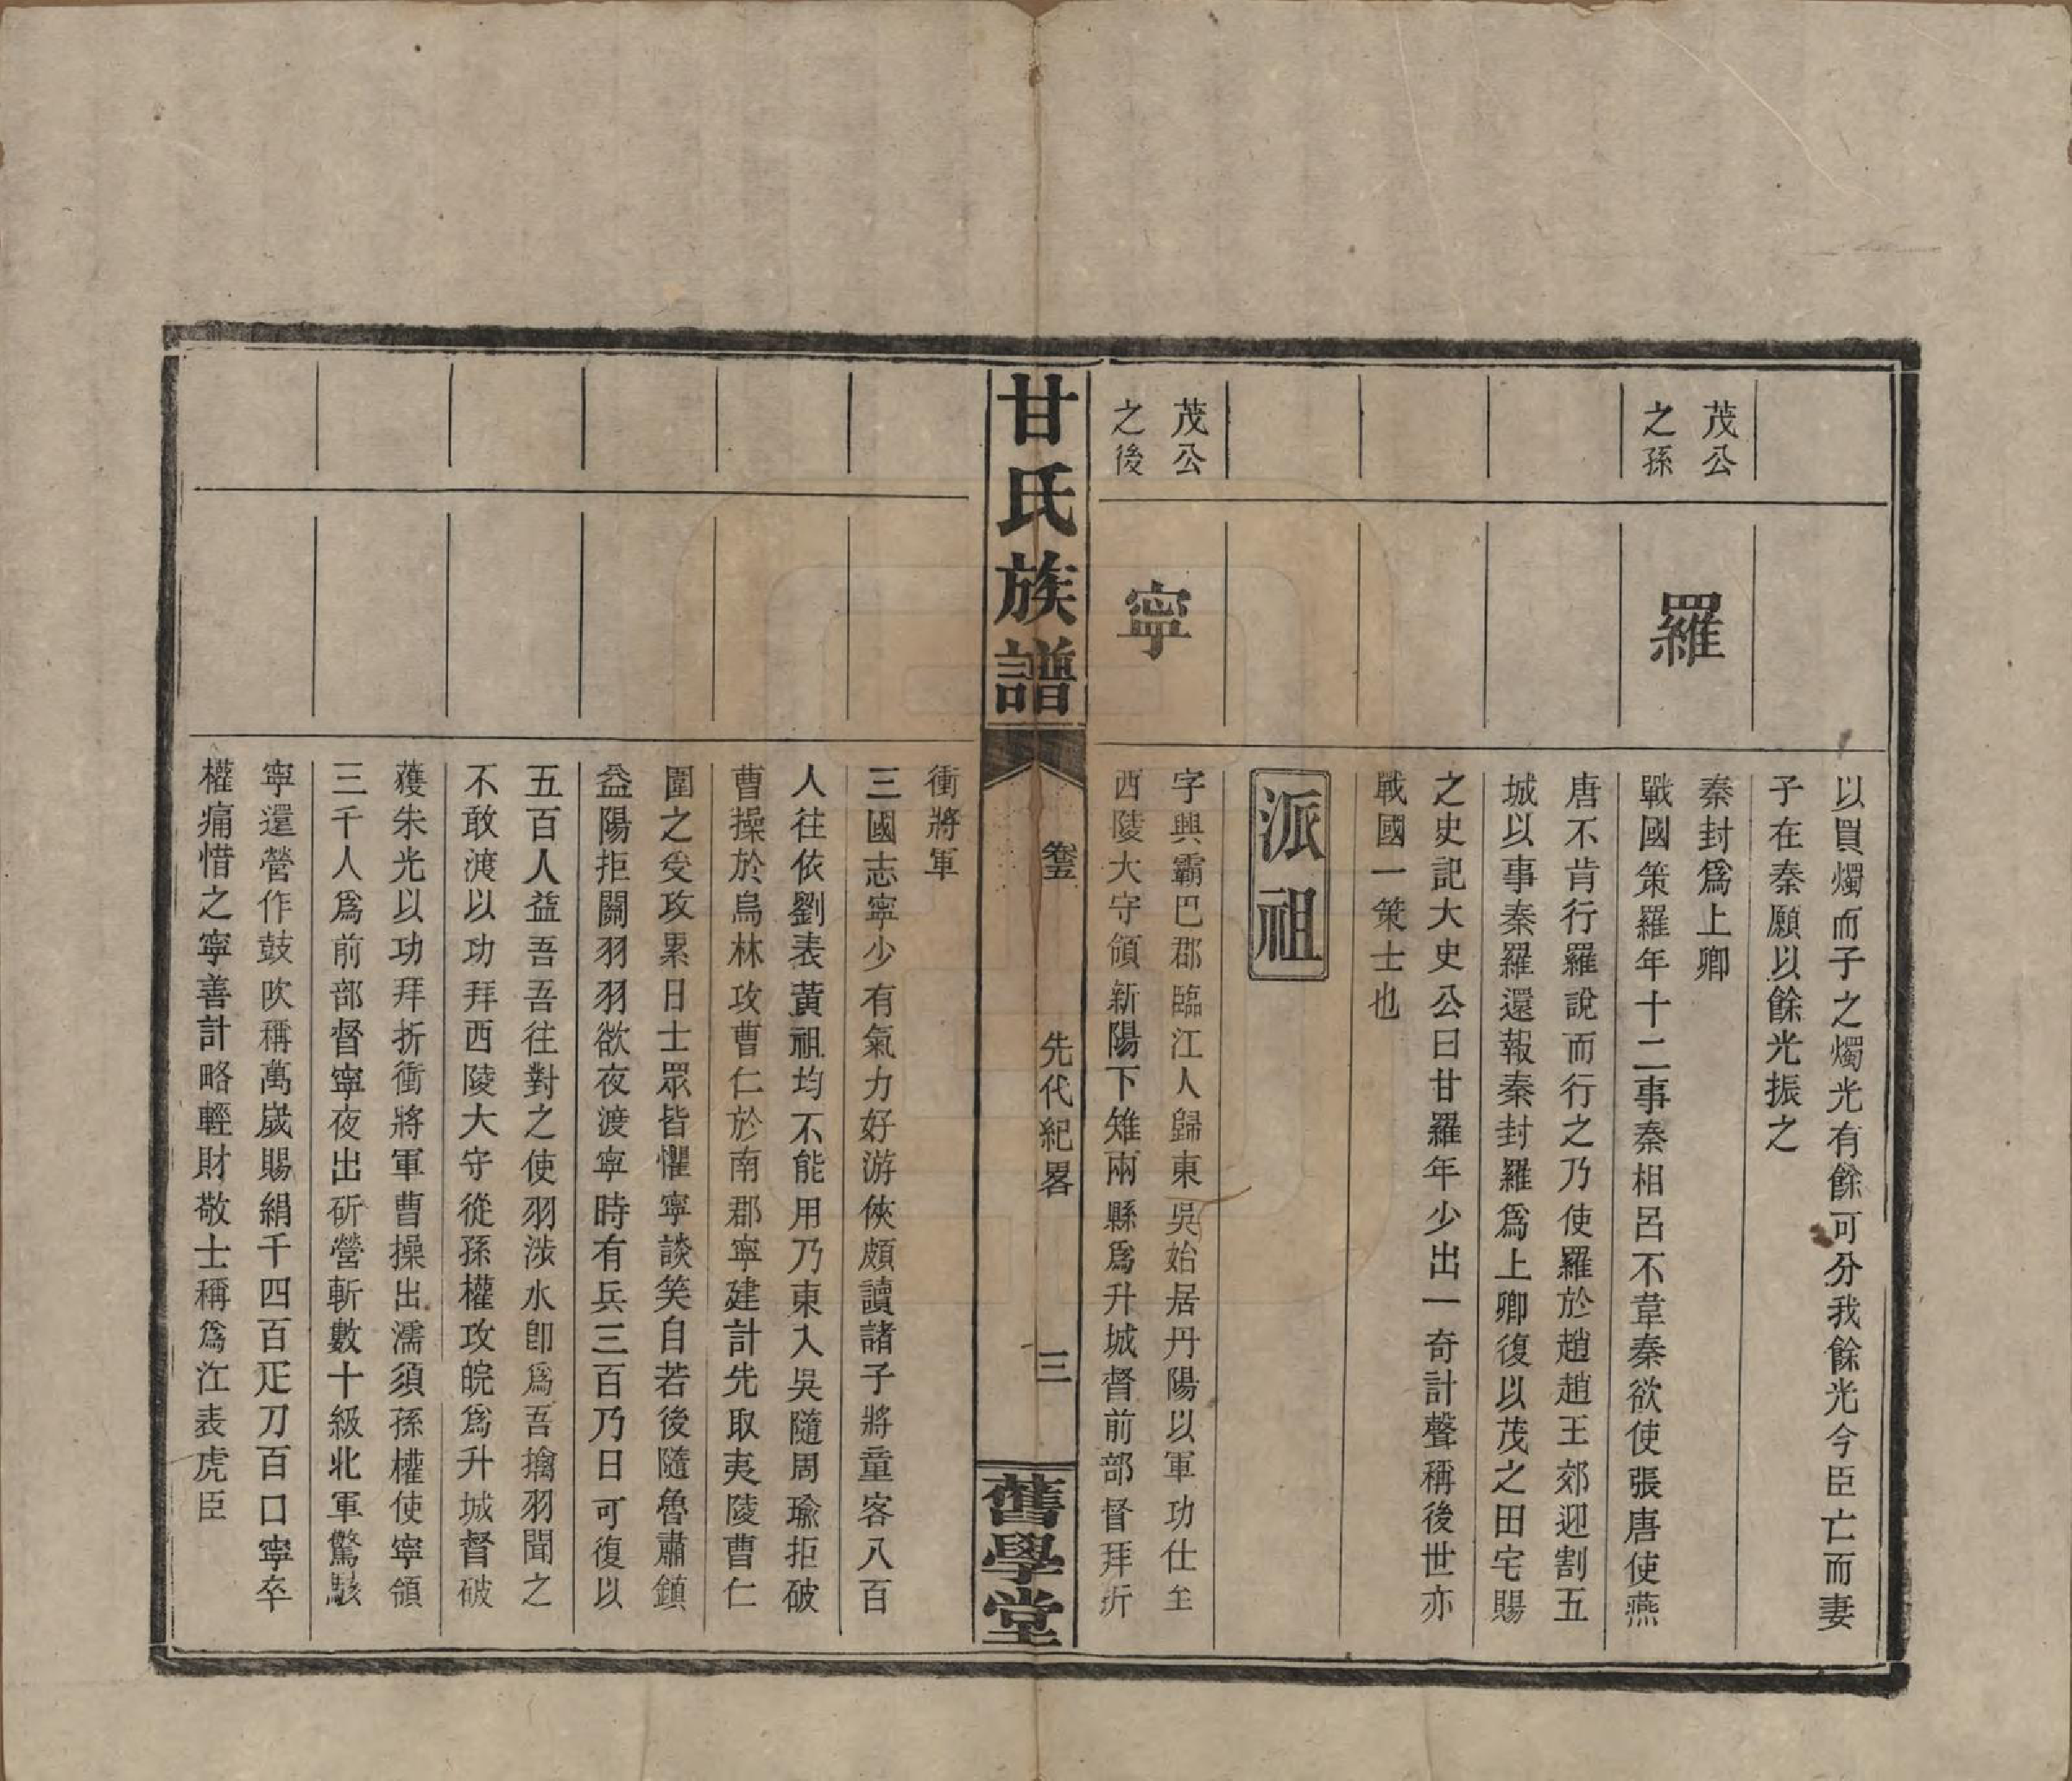 以買燭而子之燭光有餘可分我餘光今臣亡而妻
子在秦願以餘光振之
茂公
之孫
羅
秦封爲上卿
戰國策羅年十二事秦相呂不韋秦欲使張唐使燕
唐不肯行羅說而行之乃使羅於趙趙王郊迎割五
城以事秦羅還報秦封羅爲上卿復以茂之田宅賜
之史記大史公曰甘羅年少出一奇計聲稱後世亦
戰國一策士也
派祖
茂公
之後
寧
字興霸巴郡臨江人歸東吳始居丹陽以軍功仕至
西陵大守領新陽下雉兩縣爲升城督前部督拜折
甘氏族譜
卷五
先代紀畧
三
舊學堂
衝將軍
三國志寧少有氣力好游俠頗讀諸子將童客八百
人往依劉表黃祖均不能用乃東入吳隨周瑜拒破
曹操於烏林攻曹仁於南郡寧建計先取夷陵曹仁
圍之受攻累日士眾皆懼寧談笑自若後隨魯肅鎮
益陽拒關羽羽欲夜渡寧時有兵三百乃日可復以
五百人益吾吾往對之使羽涉水卽爲吾擒羽聞之
不敢渡以功拜西陵大守從孫權攻皖爲升城督破
獲朱光以功拜折衝將軍曹操出濡須孫權使寧領
三千人爲前部督寧夜出斫營斬數十級北軍驚駭
寧還營作鼓吹稱萬歲賜絹千四百疋刀百口寧卒
權痛惜之寧善計略輕財敬士稱爲江表虎臣